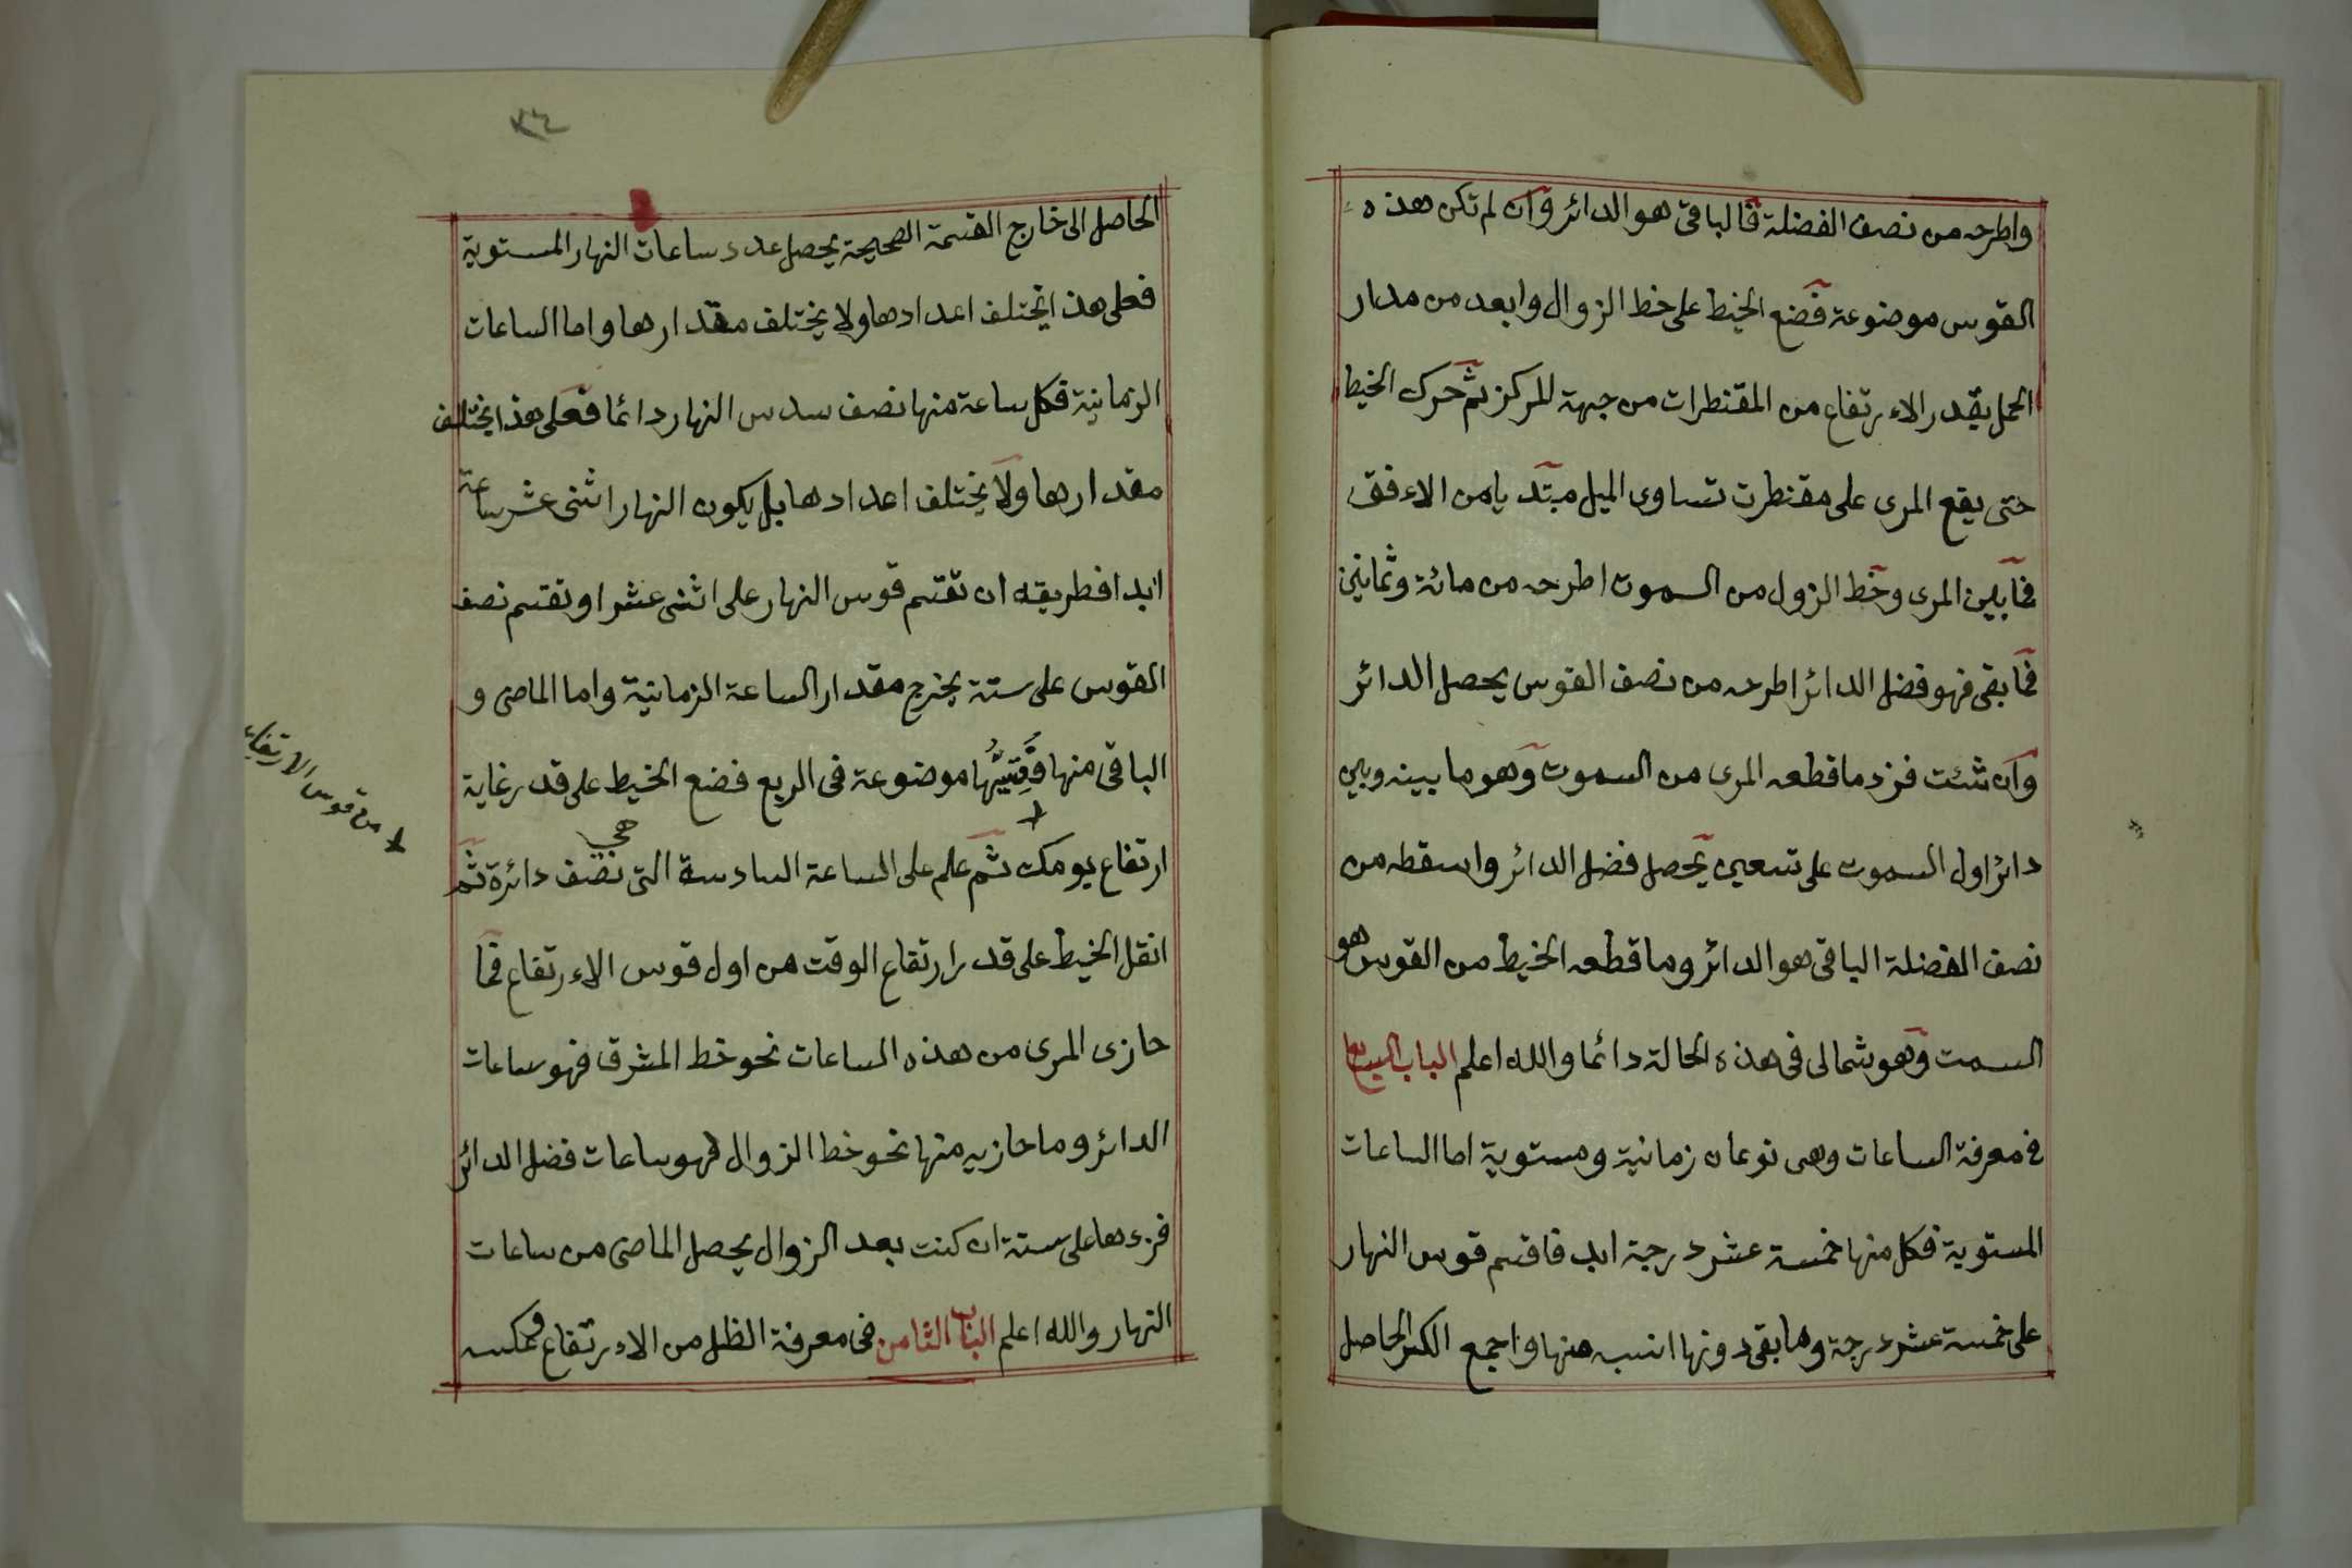 واطرحه من نصف الفضلة فالباقى هو الدائر وان لم تكن هذه
القوس موضوعة فضع الخيط على خط الزوال وابعد من مدار
الحمل بقدر الاءرتفاع من المقنطرات من جهة المركز ثم حرك الخيط
حتى يقع المرى على مقنطرت تساوى الميل مبتديا من الاءفق
فما بين المرى وخط الزول من السموت اطرحه من مائة وثمانين
فما بقى فهو فضل الدائر اطرحه من نصف القوس يحصل الدائر
وان شئت فزد ما قطعه المرى من السموت وهو ما بينه وبين
دائر اول السموت على تسعين يحصل فضل الدائر واسقطه من
نصف الفضلة الباقى هو الدائر وما قطعه الخيط من القوس هو
السمت وهو شمالى فى هذه الحالة دائما والله اعلم الباب السابع
فى معرفة الساعات وهى نوعان زمانية ومستوية اما الساعات
المستوية فكل منها خمسة عشر درجة ابدا فاقسم قوس النهار
على خمسة عشر درجة وما بقى دونها انسبه منها واجمع الكسر الحاصل
٣٤
الحاصل الى خارج القسمة الصحيحة يحصل عدد ساعات النهار المستوية
فعلى هذا يختلف اعدادها ولا يختلف مقدارها واما الساعات
الزمانية فكل ساعة منها نصف سدس النهار دائما فعلى هذا يختلف
مقدارها ولا يختلف اعدادها بل يكون النهار اثنى عشر ساعة
ابدا فطريقه ان تقسم قوس النهار على اثنى عشر او تقسم نصف
القوس على ستة يخرج مقدار الساعة الزمانية واما الماضى و
الباقى منها موضوعة فى الربع فضع الخيط على قدر غاية
ارتفاع يومك ثم علم على الساعة السادسة التى هى نصف دائرة ثم
انقل الخيط على قدر ارتفاع الوقت من اول قوس الاءرتفاع فما
حازى المرى من هذه الساعات نحو خط المشرق فهو ساعات
الدائر وما حازيه منها نحو خط الزوال فهو ساعات فضل الدائر
فزدها على ستة ان كنت بعد الزوال يحصل الماضى من ساعات
النهار والله اعلم الباب الثامن فى معرفة الظل من الاءرتفاع وعكسه
من قوس الارتفاع